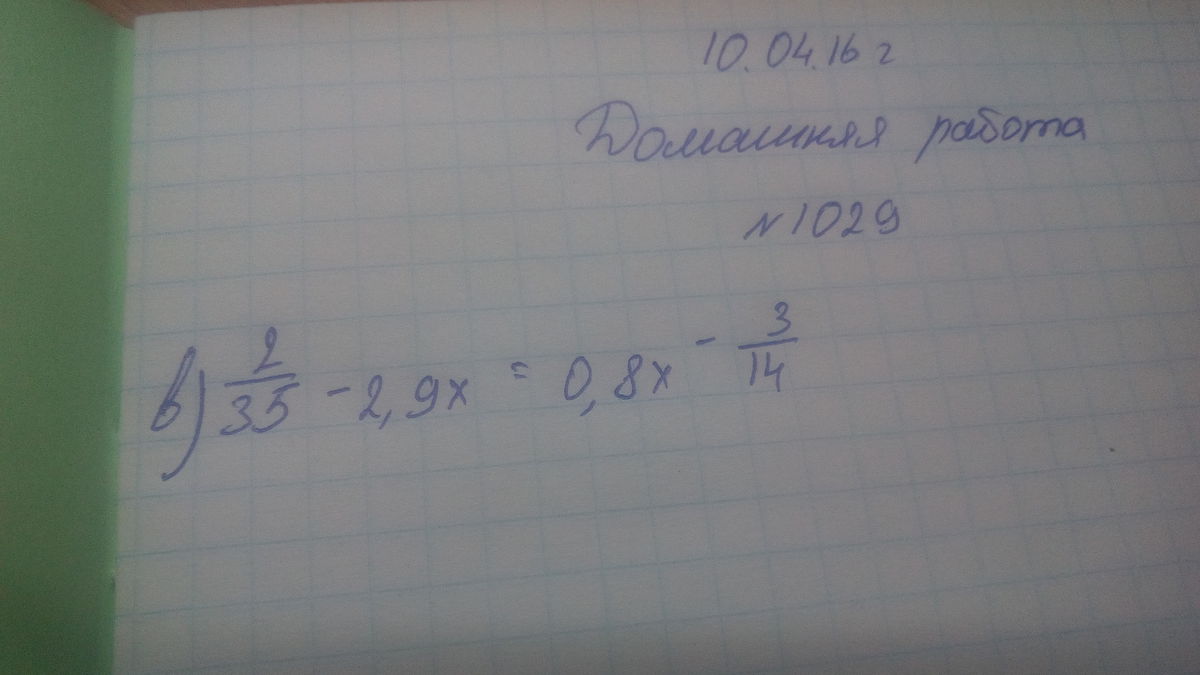 10.04.16 г
Домашняя работа
№1029
в) 2/35 - 2,9x = 0,8x - 3/14